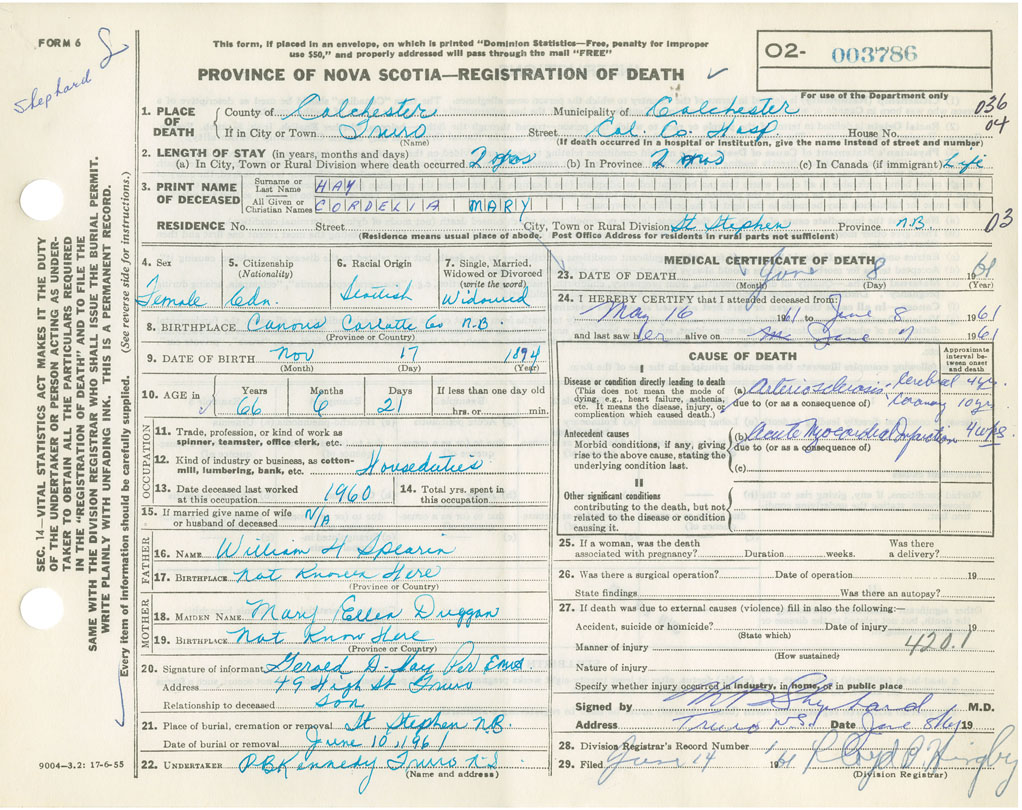 FORM 6
Shephard
This form, if placed in an envelope, on which is printed "Dominion Statistics—Free, penalty for improper
use $50," and properly addressed will pass through the mail "FREE"
PROVINCE OF NOVA SCOTIA—REGISTRATION OF DEATH ✓
O2- 003786
For use of the Department only
036
04
1. PLACE OF DEATH
County of Colchester Municipality of Colchester
If in City or Town Truro Street Col. Co. Hosp House No.
(Name) (If death occurred in a hospital or institution, give the name instead of street and number)
2. LENGTH OF STAY (in years, months and days)
(a) In City, Town or Rural Division where death occurred 2 mos (b) In Province 2 mos (c) In Canada (if immigrant) Life
3. PRINT NAME OF DECEASED
Surname or Last Name HAY
All Given or Christian Names CORDELIA MARY
RESIDENCE No. Street City, Town or Rural Division St Stephen Province N.B. 03
(Residence means usual place of abode. Post Office Address for residents in rural parts not sufficient)
4. Sex Female
5. Citizenship (Nationality) Cdn.
6. Racial Origin Scottish
7. Single, Married, Widowed or Divorced (write the word) Widowed
8. BIRTHPLACE Canous Carlotte Co N.B.
(Province or Country)
9. DATE OF BIRTH Nov 17 1894
(Month) (Day) (Year)
10. AGE in ✓ Years 66 Months 6 Days 21 If less than one day old
hrs. or min.
OCCUPATION
11. Trade, profession, or kind of work as
spinner, teamster, office clerk, etc.
12. Kind of industry or business, as cotton-
mill, lumbering, bank, etc. Houseduties
13. Date deceased last worked
at this occupation 1960
14. Total yrs. spent in
this occupation
15. If married give name of wife
or husband of deceased N/A
FATHER
16. NAME William H Spearin
17. BIRTHPLACE Not Known Here
(Province or Country)
MOTHER
18. MAIDEN NAME Mary Ellen Duggan
19. BIRTHPLACE Not Know Here
(Province or Country)
20. Signature of informant Gerald D. Hay Per
Address 49 High St Truro
Relationship to deceased Son
21. Place of burial, cremation or removal St Stephen N.B.
Date of burial or removal June 10, 1961
22. UNDERTAKER P.B. Kennedy Truro N.S
(Name and address)
9004-3.2: 17-6-55
MEDICAL CERTIFICATE OF DEATH
23. DATE OF DEATH June 8 1961
(Month) (Day) (Year)
24. I HEREBY CERTIFY that I attended deceased from:
May 16 1961 to June 8 1961
and last saw her alive on June 7 1961
CAUSE OF DEATH
Approximate interval between onset and death
I
Disease or condition directly leading to death
(This does not mean the mode of
dying, e.g., heart failure, asthenia,
etc. It means the disease, injury, or
complication which caused death.)
(a) Arteriosclerosis, Cerebral 4 yrs
due to (or as a consequence of) Coronary 10 yrs
Antecedent causes
Morbid conditions, if any, giving
rise to the above cause, stating the
underlying condition last.
(b) Acute Myocardial Infarction 4 wks
due to (or as a consequence of)
(c)
II
Other significant conditions
contributing to the death, but not
related to the disease or condition
causing it.
25. If a woman, was the death
associated with pregnancy? Duration weeks. Was there
a delivery?
26. Was there a surgical operation? Date of operation 19
State findings Was there an autopsy?
27. If death was due to external causes (violence) fill in also the following:—
Accident, suicide or homicide? Date of injury 19
(State which)
Manner of injury 420.1
(How sustained)
Nature of injury
Specify whether injury occurred in industry, in home, or in public place
Signed by Shephard M.D.
Address Truro N.S. Date June 8/61 19
28. Division Registrar's Record Number
29. Filed June 14 1961 Lloyd
(Division Registrar)
SEC. 14—VITAL STATISTICS ACT MAKES IT THE DUTY
OF THE UNDERTAKER OR PERSON ACTING AS UNDER-
TAKER TO OBTAIN ALL THE PARTICULARS REQUIRED
IN THE "REGISTRATION OF DEATH" AND TO FILE THE
SAME WITH THE DIVISION REGISTRAR WHO SHALL ISSUE THE BURIAL PERMIT.
WRITE PLAINLY WITH UNFADING INK. THIS IS A PERMANENT RECORD.
Every item of information should be carefully supplied. (See reverse side for instructions.)